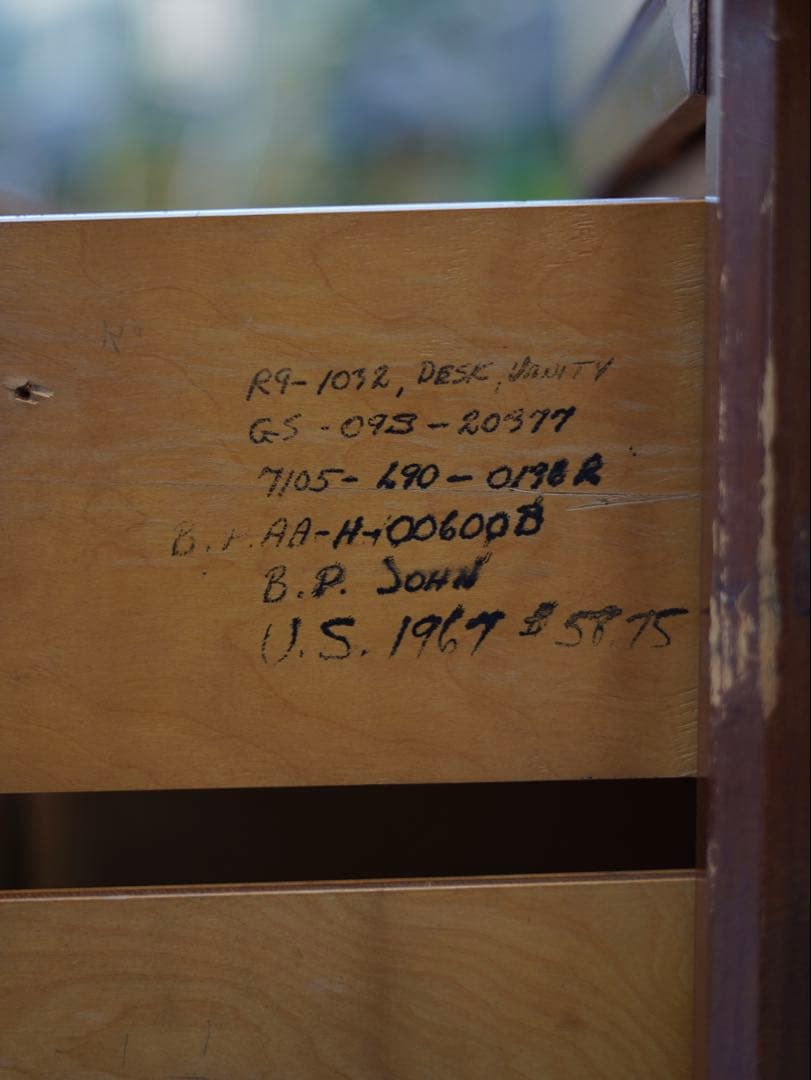 R9-1032, DESK, VANITY
GS-09S-20377
7105-L90-0196R
AA-H-100600B
B.P. JOHN
U.S. 1967 $58.75